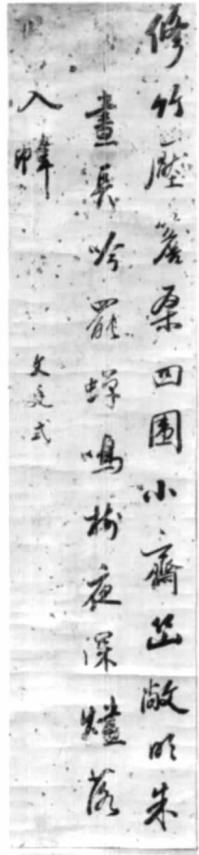 修竹壓簷桑四圍小齋幽敞明朱
晝長吟罷蟬鳴樹夜深燼落
入幃
文廷式